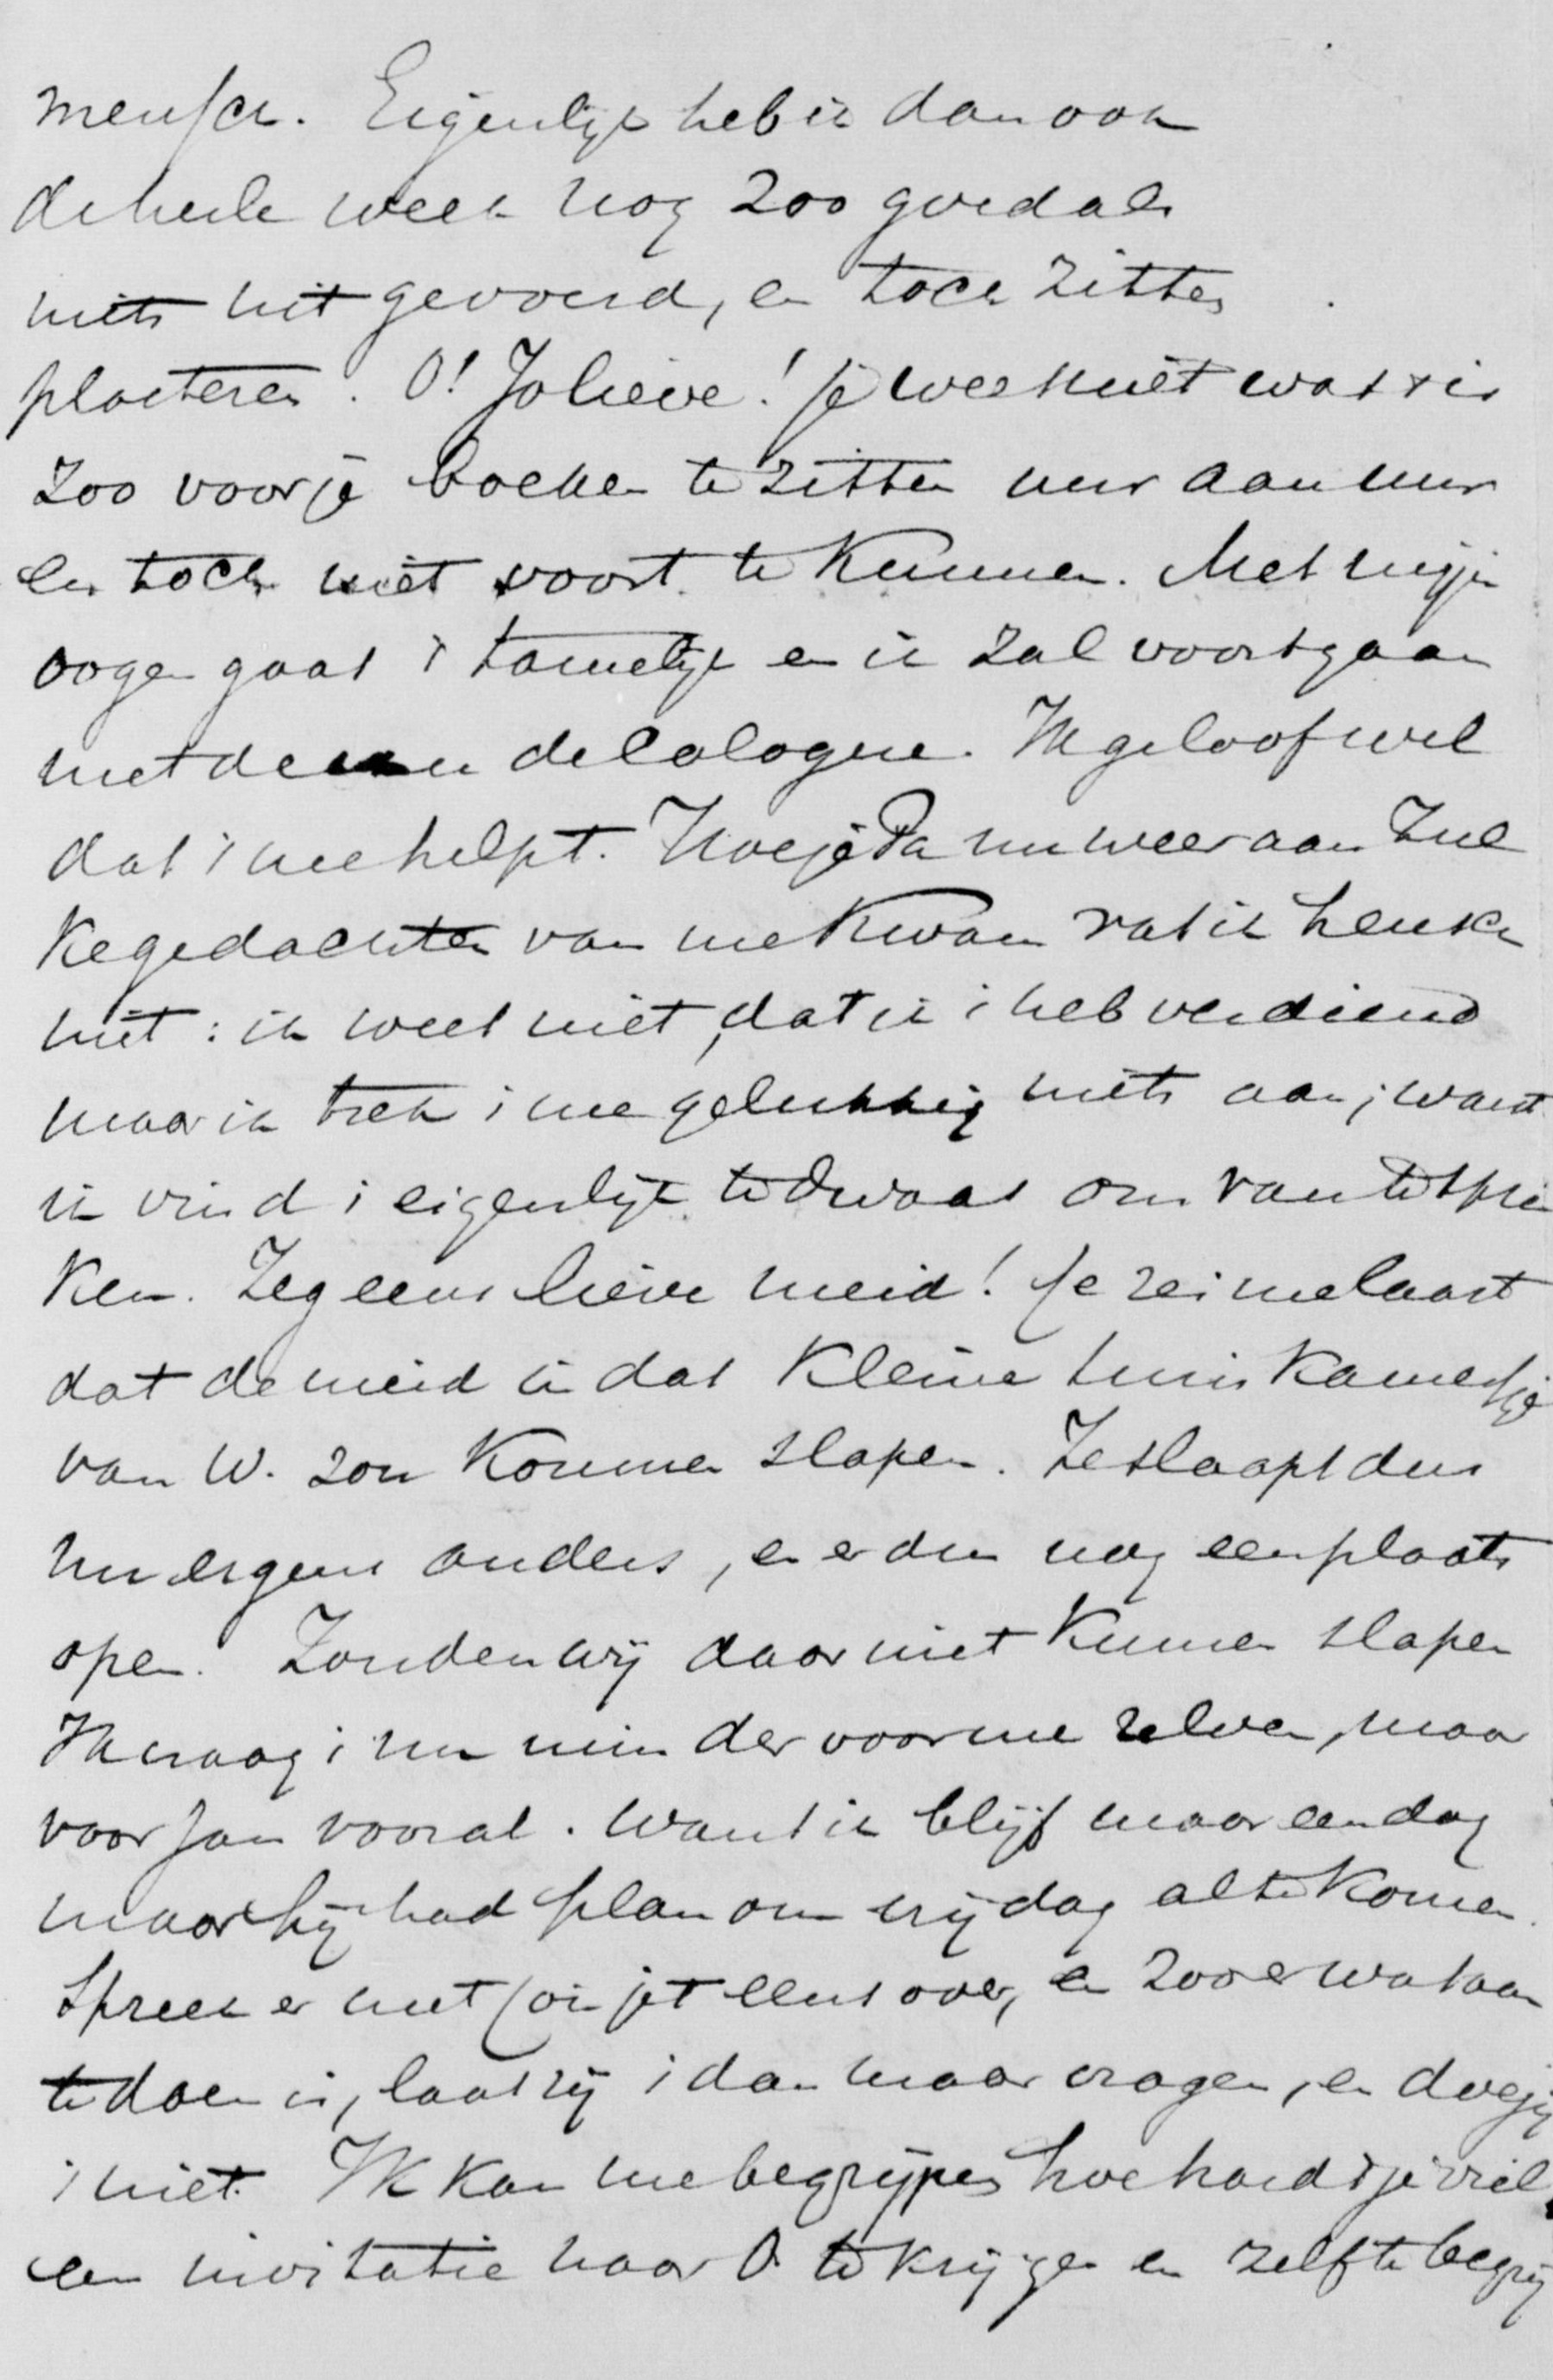 mensch. Eigenlijk heb ik dan ook
de heele week nog zoo goed als
niets uitgevoerd, en toch zitten
ploeteren. O! Jo lieve! je weet niet wat 't is
zoo voor je boeken te zitten uur aan uur
en toch niet voort te kunnen. Met mijn
oogen gaat 't tamelijk en ik zal voortgaan
met de eau de Cologne. Ik geloof wel
dat 't me helpt. Hoe je Pa nu weer aan zul
ke gedachten van me kwam vat ik heusch
niet: ik weet niet, dat ik 't heb verdiend
maar ik trek 't me gelukkig niets aan; want
ik vind 't eigenlijk te dwaas om van te spre
ken. Zeg eens lieve meid! Je zei me laast
dat de meid in dat kleine tuinkamertje
van W. zou komen slapen. Ze slaapt dus
nu ergens anders, en er dus nog een plaats
open. Zouden wij daar niet kunnen slapen
Ik vraag 't nu minder voor me zelven, maar
voor Jan vooral. Want ik blijf maar een dag
maar hij had plan om vrijdag al te komen.
Spreek er met Conjet eens over, en zoo er wat aan
te doen is, laat zij 't dan maar vragen, en doe jij
't niet. Ik kan me begrijpen hoe hard 't je viel
een invitatie naar O. te krijgen en zelf te begrij